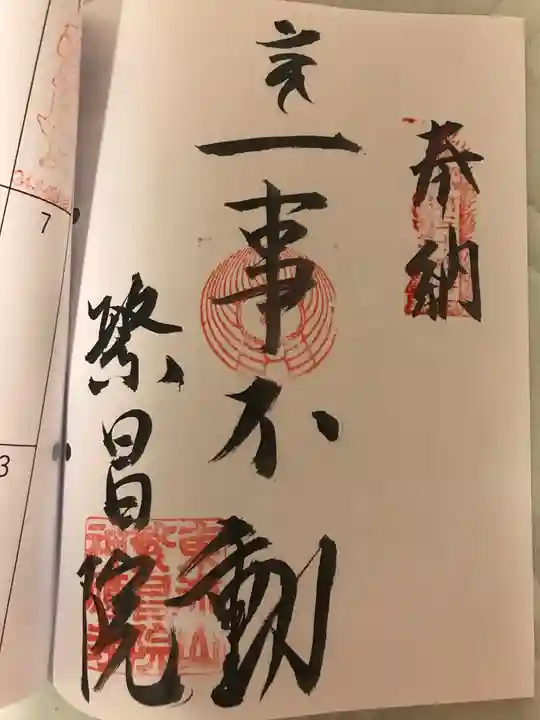 奉納
一事不動
繁昌院
7
3